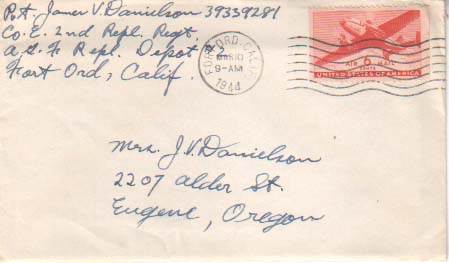 Pvt. James V. Danielson 39339281
Co. E. 2nd Repl. Regt.
A.G.F. Repl. Depot #2
Fort Ord, Calif.
FORT ORD, CALIF.
MAR 10
9-AM
1944
AIR 6 MAIL
CENTS
UNITED STATES OF AMERICA
Mrs. J.V. Danielson
2207 Alder St.
Eugene, Oregon